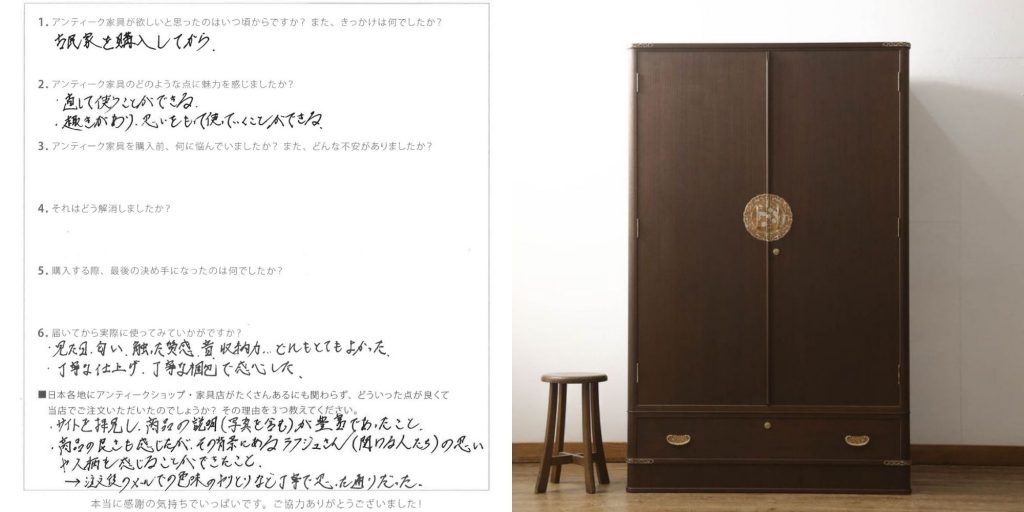 1. アンティーク家具が欲しいと思ったのはいつ頃からですか？また、きっかけは何でしたか？
古民家を購入してから.
2. アンティーク家具のどのような点に魅力を感じましたか？
・直して使うことができる.
・趣きがあり、思いをもって使っていくことができる.
3. アンティーク家具を購入前、何に悩んでいましたか？また、どんな不安がありましたか？
4. それはどう解消しましたか？
5. 購入する際、最後の決め手になったのは何でしたか？
6. 届いてから実際に使ってみていかがですか？
・見た目. 匂い. 触った質感. 音 収納力... どれもとてもよかった.
・丁寧な仕上げ. 丁寧な梱包で感心した.
■日本各地にアンティークショップ・家具店がたくさんあるにも関わらず、どういった点が良くて
当店でご注文いただいたのでしょうか？その理由を3つ教えてください。
・サイトを拝見し. 商品の説明(写真を含も)が豊富であったこと.
・商品の良さも感じたが、その背景にあるラフジュさん(関わる人たち)の思い
や人柄を感じることができたこと.
→注文後のメールでの色味のやりとりなど丁寧で思った通りだった.
本当に感謝の気持ちでいっぱいです。ご協力ありがとうございました！